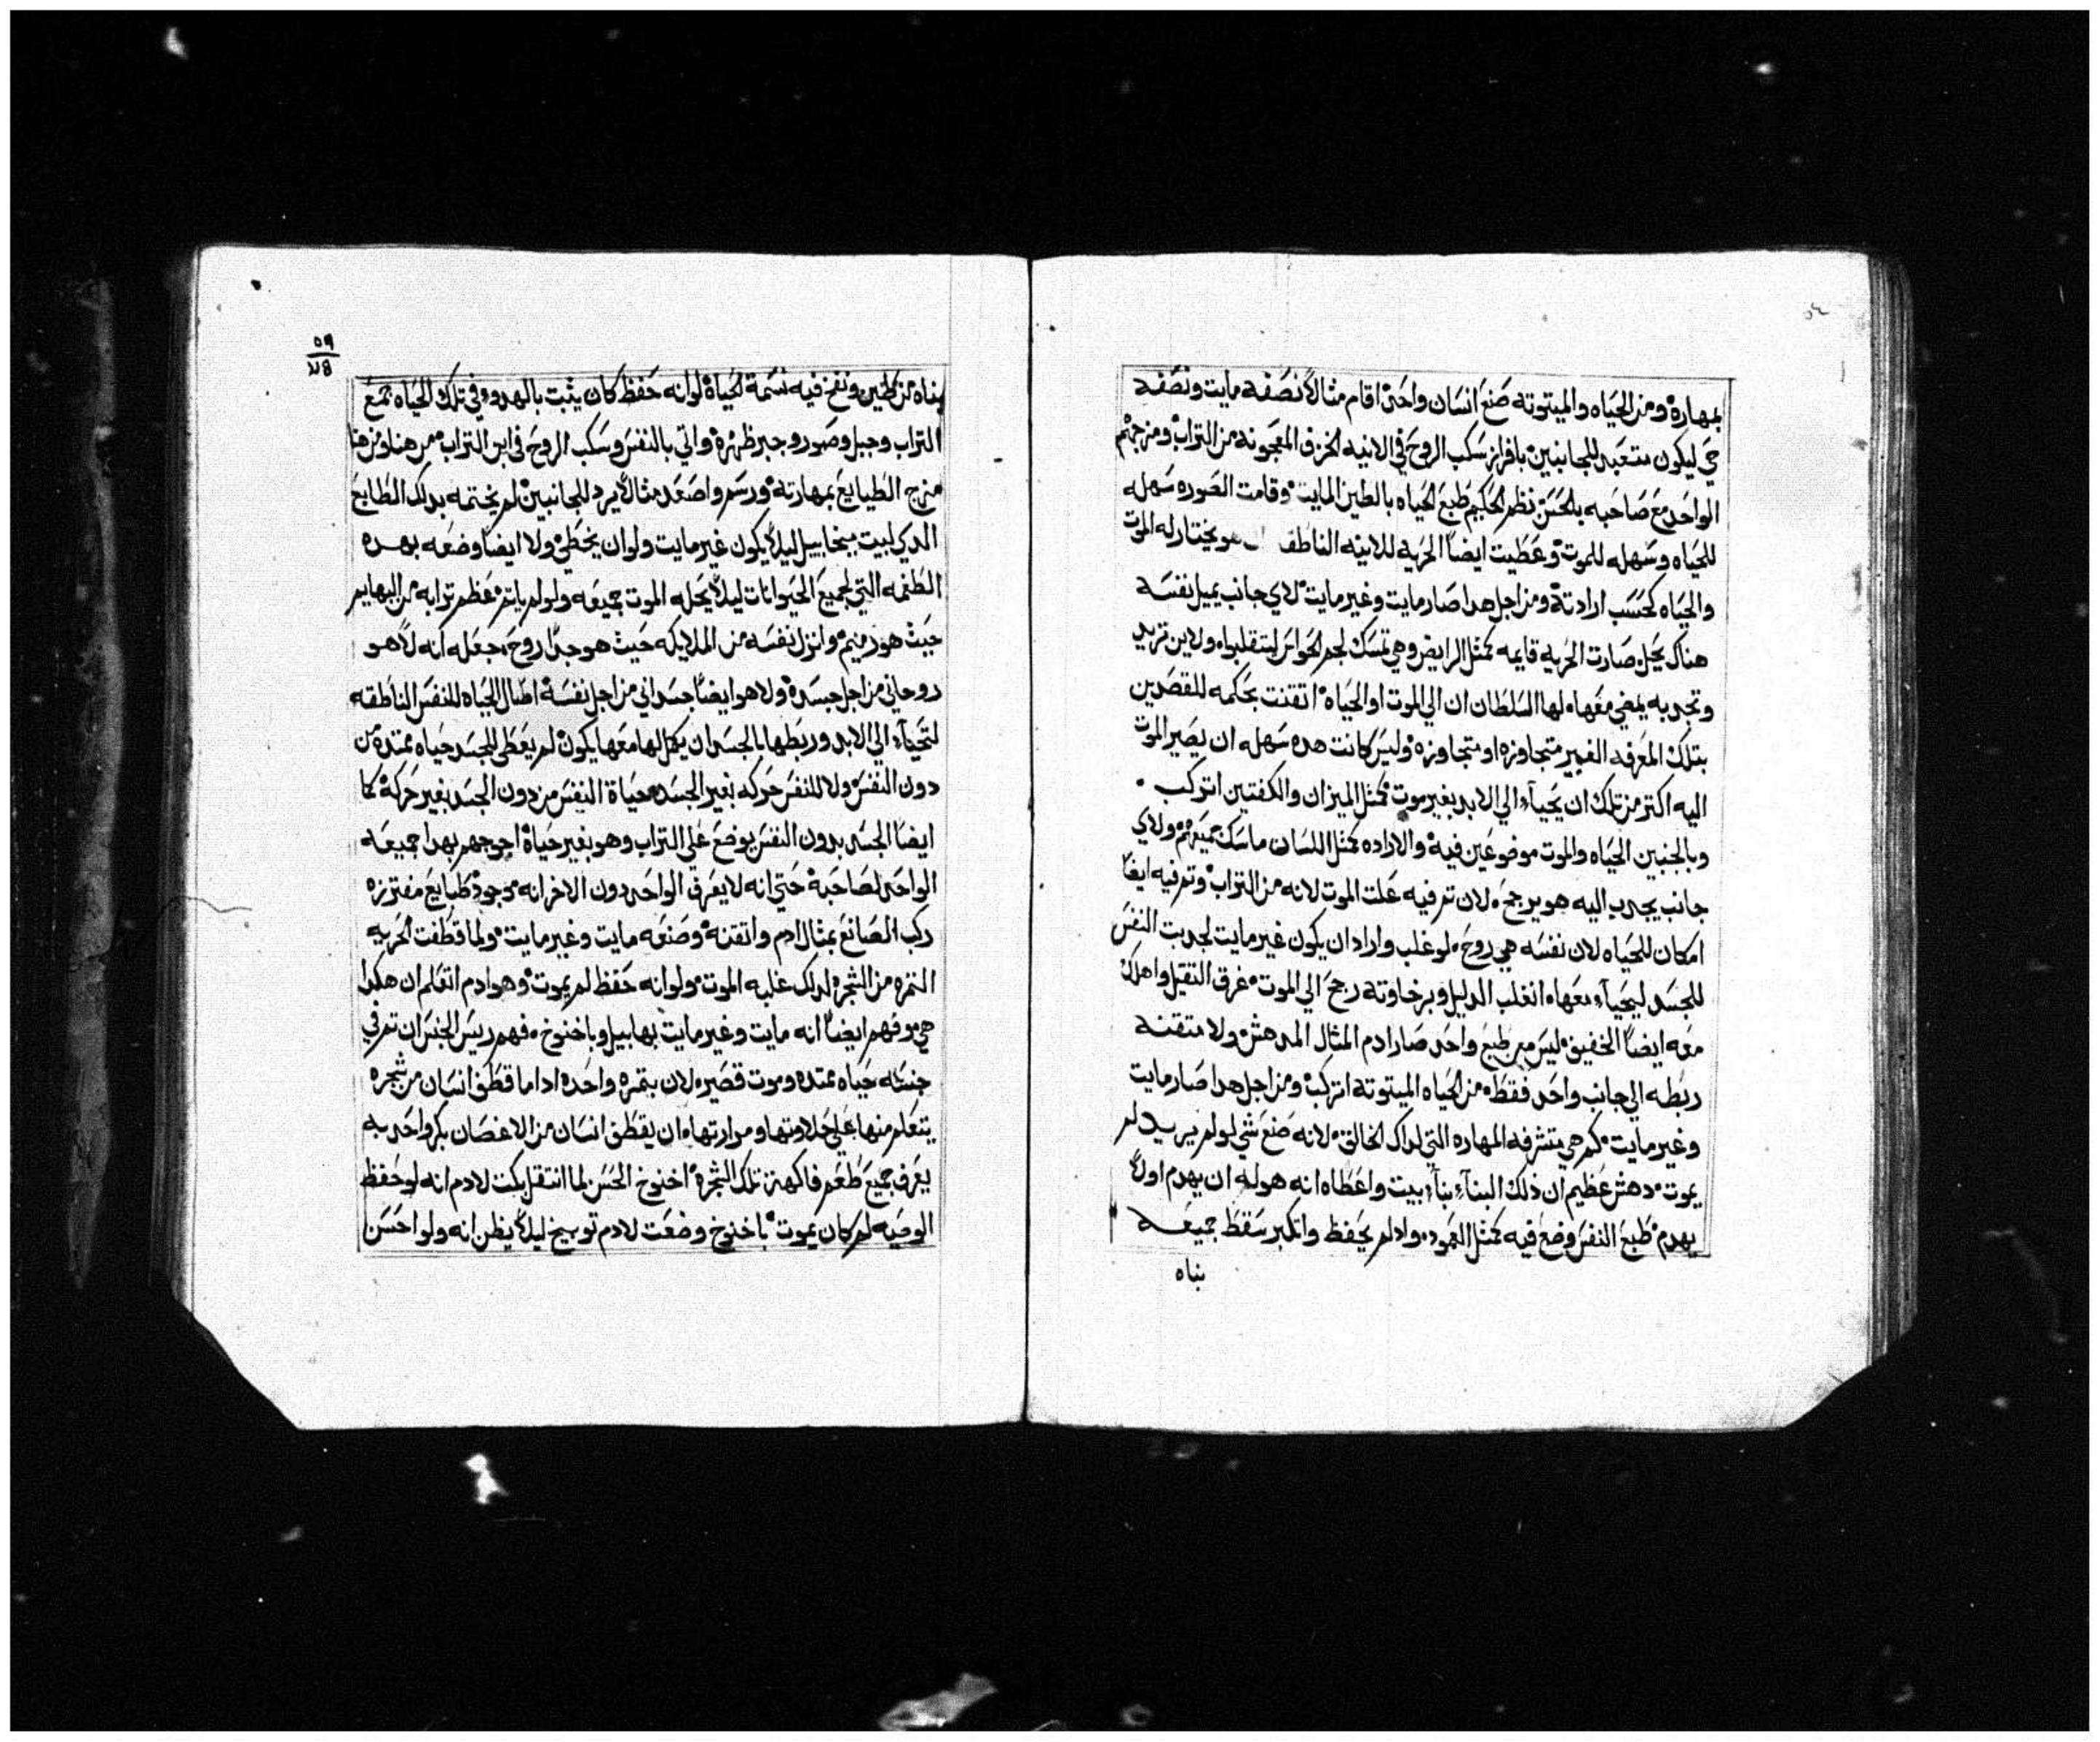 بمهارة ومن الحياه والميتوته صنع انسان واحد اقام مثالاً نصفه مايت ونصفه
حي ليكون متعبد للجانبين بافراز سكب الروح في الانيه الخزف المعجونه من التراب ومزجهم
الواحد مع صاحبه بالحسن نظم الحكيم طبع الحياه بالطين المايت وقامت الصوره سهله
للحياه وسهله للموت وعطيت ايضاً الحريه للانيه الناطقه هو يختار له الموت
والحياه كحسب ارادته ومن اجل هدا صار مايت وغير مايت لاي جانب يميل نفسه
هناك يحل صارت الحريه قايمه كمثل الرايض وهي تمسك لجم الحواس لينقلبوا ولاين تريد
وتجد به يمضي معها لها السلطان ان الي الموت او الحياه اتقنت بحكمه للقصدين
بتلك المعرفه الغير متجاوزه او متجاوزه وليس كانت هده سهله ان يصير الموت
اليه اكتر من تلك ان يحيا الي الابد بغير موت كمثل الميزان والكفتين اتركب
وبالجنبين الحياه والموت موضوعين فيه والاراده كمثل اللسان ماسك جميعهم ولاي
جانب يجدب اليه هو يرجح لان تم فيه علت الموت لانه من التراب وتم فيه ايضاً
امكان للحياه لان نفسه هي روح لو غلب واراد ان يكون غير مايت لجدبت النفس
للجسد ليحيا معها انغلب الدليل وبرخاوته رجح الي الموت غرق التقيل واهلك
معه ايضاً الخفيف ليس من طبع واحد صار ادم المثال المدهش ولا متقنه
ربطه الي جانب واحد فقط من الحياه الميتوته اتركب ومن اجل هدا صار مايت
وغير مايت كم هي متشرفه المهاره التي لداك الخالق لانه صنع شي لو لم يريد لم
يموت دهش عظيم ان ذلك البنا بنا بيت واعطاه انه هو له ان يهدم اولاً
يهدم طبع النفس وضع فيه كمثل العمود وادلم يحفظ واتكبر سقط جميعه
بناه
٥٩
بناه من طين ونفخ فيه نسمة الحياة لوانه حفظ كان يثبت بالهدوو في تلك الحياه جمع
التراب وجبل وصور وجبر ظهره واتي بالنفس وسكب الروح في ابن التراب من هنا ومن هنا
مزج الطبايع بمهارته ورسم واصعد مثالاً يرد للجانبين لم يختمه بدلك الطابع
الدي لبيت ميخاييل ليلاً يكون غير مايت ولو ان يخطي ولا ايضاً وضعه بهده
الطغمه التي لجميع الحيوانات ليلاً يحله الموت جميعه ولو لم ياتم عظم ترابه من البهايم
حيث هو منهم وانزل نفسه من الملايكه حيث هو جدا روح جعله انه لا هو
روحاني من اجل جسده ولا هو ايضاً جسداني من اجل نفسه امال الحياه للنفس الناطقه
لتحيا الي الابد وربطها بالجسد ان يكمل لها معها يكون لم يعطي للجسد حياه ممتده من
دون النفس ولا للنفس حركه بغير الجسد حياة النفس من دون الجسد بغير حركة كما
ايضاً الجسد بدون النفس يوضع علي التراب وهو بغير حياة احوجهم بهدا جميعه
الواحد لصاحبه حتي انه لا يعرف الواحد دون الاخر انه موجود طبايع مفترزه
ركب الصانع بمثال ادم واتقنه وصنعه مايت وغير مايت ولما قطفت الحريه
التمره من الشجره لدلك غلبه الموت ولوانه حفظ لم يموت وهو ادم اتعلم ان هكدا
هي هو فهم ايضاً انه مايت وغير مايت بهابيل وباخنوخ فهم ريس الجنس ان تم في
جنسه حياه ممتده وموت قصير لان بتمره واحده ادا ما قطف انسان من شجره
يتعلم منها علي حلاوتها ومرارتها ان يقطف انسان من الاغصان بكر واحد به
يعرف جميع طعم فاكهة تلك الشجرة اخنوخ الحسن لما انتقل بكت لادم انه لو حفظ
الوصيه لم كان يموت باخنوخ وضعت لادم توبيخ ليلاً يظن انه ولو احسن